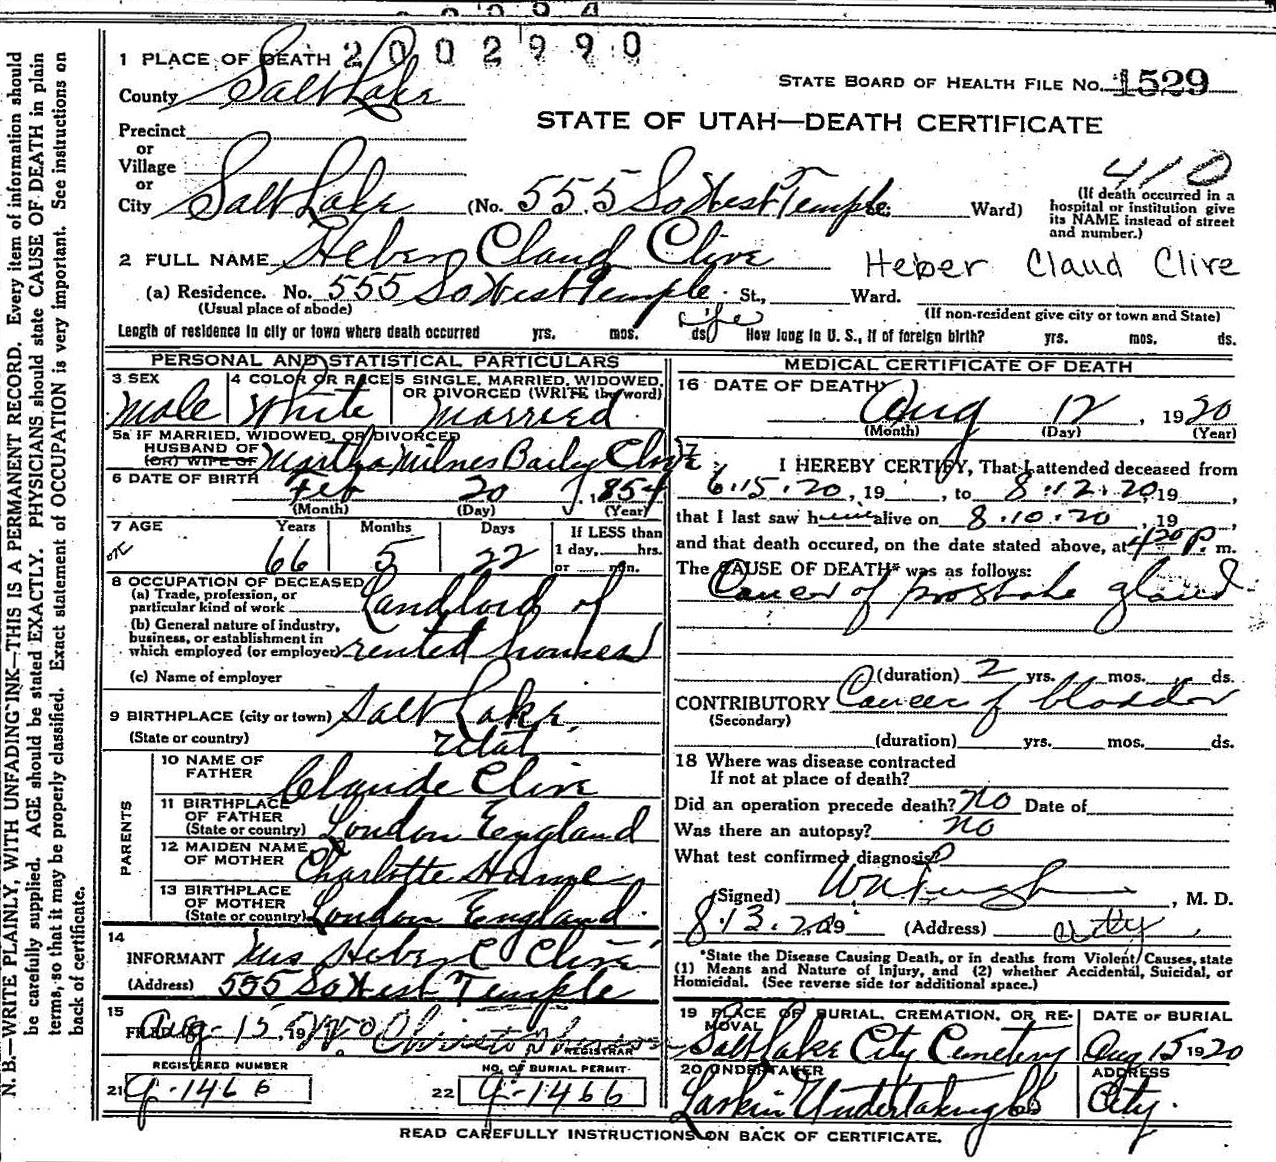 2002990
1 PLACE OF DEATH
STATE BOARD OF HEALTH FILE No. 1529
County Salt Lake
STATE OF UTAH—DEATH CERTIFICATE
Precinct
or
Village
or
City Salt Lake (No. 555 So West Temple Ward)
410
(If death occurred in a
hospital or institution give
its NAME instead of street
and number.)
2 FULL NAME Heber Claud Clive Heber Claud Clive
(a) Residence. No. 555 So West Temple St., Ward.
(Usual place of abode) (If non-resident give city or town and State)
Life
Length of residence in city or town where death occurred yrs. mos. ds. How long in U. S., if of foreign birth? yrs. mos. ds.
PERSONAL AND STATISTICAL PARTICULARS
3 SEX 4 COLOR OR RACE 5 SINGLE, MARRIED, WIDOWED,
OR DIVORCED (WRITE the word)
Male White Married
5a IF MARRIED, WIDOWED, OR DIVORCED
HUSBAND OF
(OR) WIFE OF Martha Milnes Baily Clive
6 DATE OF BIRTH Feb 20, 1854
(Month) (Day) (Year)
7 AGE Years Months Days If LESS than
1 day, hrs.
or min.
66 5 22
8 OCCUPATION OF DECEASED
(a) Trade, profession, or
particular kind of work Landlord of
(b) General nature of industry,
business, or establishment in
which employed (or employer) rented houses
(c) Name of employer
9 BIRTHPLACE (city or town) Salt Lake,
(State or country) Utah
PARENTS
10 NAME OF
FATHER Claude Clive
11 BIRTHPLACE
OF FATHER
(State or country) London England
12 MAIDEN NAME
OF MOTHER Charlotte Hume
13 BIRTHPLACE
OF MOTHER
(State or country) London England.
14
INFORMANT Mrs Heber C Clive
(Address) 555 So West Temple
15
FILED Aug-15, 1920
REGISTRAR
REGISTERED NUMBER NO. OF BURIAL PERMIT
21 G-1466 22 G-1466
MEDICAL CERTIFICATE OF DEATH
16 DATE OF DEATH
Aug 12, 1920
(Month) (Day) (Year)
I HEREBY CERTIFY, That I attended deceased from
6.15.20, 19 , to 8.12.20, 19 ,
that I last saw him alive on 8.10.20, 19 ,
and that death occured, on the date stated above, at 4 20 P. m.
The CAUSE OF DEATH* was as follows:
Cancer of prostate gland
(duration) 2 yrs. mos. ds.
CONTRIBUTORY Cancer of bladder
(Secondary)
(duration) yrs. mos. ds.
18 Where was disease contracted
If not at place of death?
Did an operation precede death? no Date of
Was there an autopsy? no
What test confirmed diagnosis?
(Signed) , M. D.
8.13.20 19 (Address) City
*State the Disease Causing Death, or in deaths from Violent Causes, state
(1) Means and Nature of Injury, and (2) whether Accidental, Suicidal, or
Homicidal. (See reverse side for additional space.)
19 PLACE OF BURIAL, CREMATION, OR RE-
MOVAL DATE OF BURIAL
Salt Lake City Cemetery Aug 15 1920
20 UNDERTAKER ADDRESS
Larkin Undertaking Co City.
READ CAREFULLY INSTRUCTIONS ON BACK OF CERTIFICATE.
N. B.—WRITE PLAINLY, WITH UNFADING INK—THIS IS A PERMANENT RECORD. Every item of information should
be carefully supplied. AGE should be stated EXACTLY. PHYSICIANS should state CAUSE OF DEATH in plain
terms, so that it may be properly classified. Exact statement of OCCUPATION is very important. See instructions on
back of certificate.